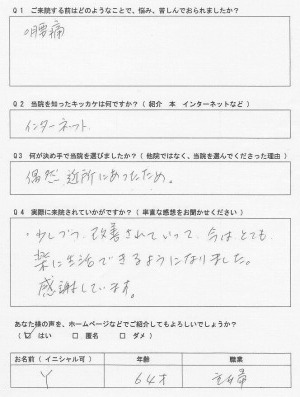 Q1 ご来院する前はどのようなことで、悩み、苦しんでおられましたか?
腰痛
Q2 当院を知ったキッカケは何ですか?（紹介 本 インターネットなど）
インターネット
Q3 何が決め手で当院を選びましたか?（他院ではなく、当院を選んでくださった理由）
偶然 近所にあったため。
Q4 実際に来院されていかがですか?（率直な感想をお聞かせください）
・少しづつ、改善されていって、今はとても
楽に生活できるようになりました。
感謝しています。
あなた様の声を、ホームページなどでご紹介してもよろしいでしょうか?
（ ☑ はい □ 匿名 □ ダメ ）
お名前（イニシャル可） 年齢 職業
Y 64才 主婦